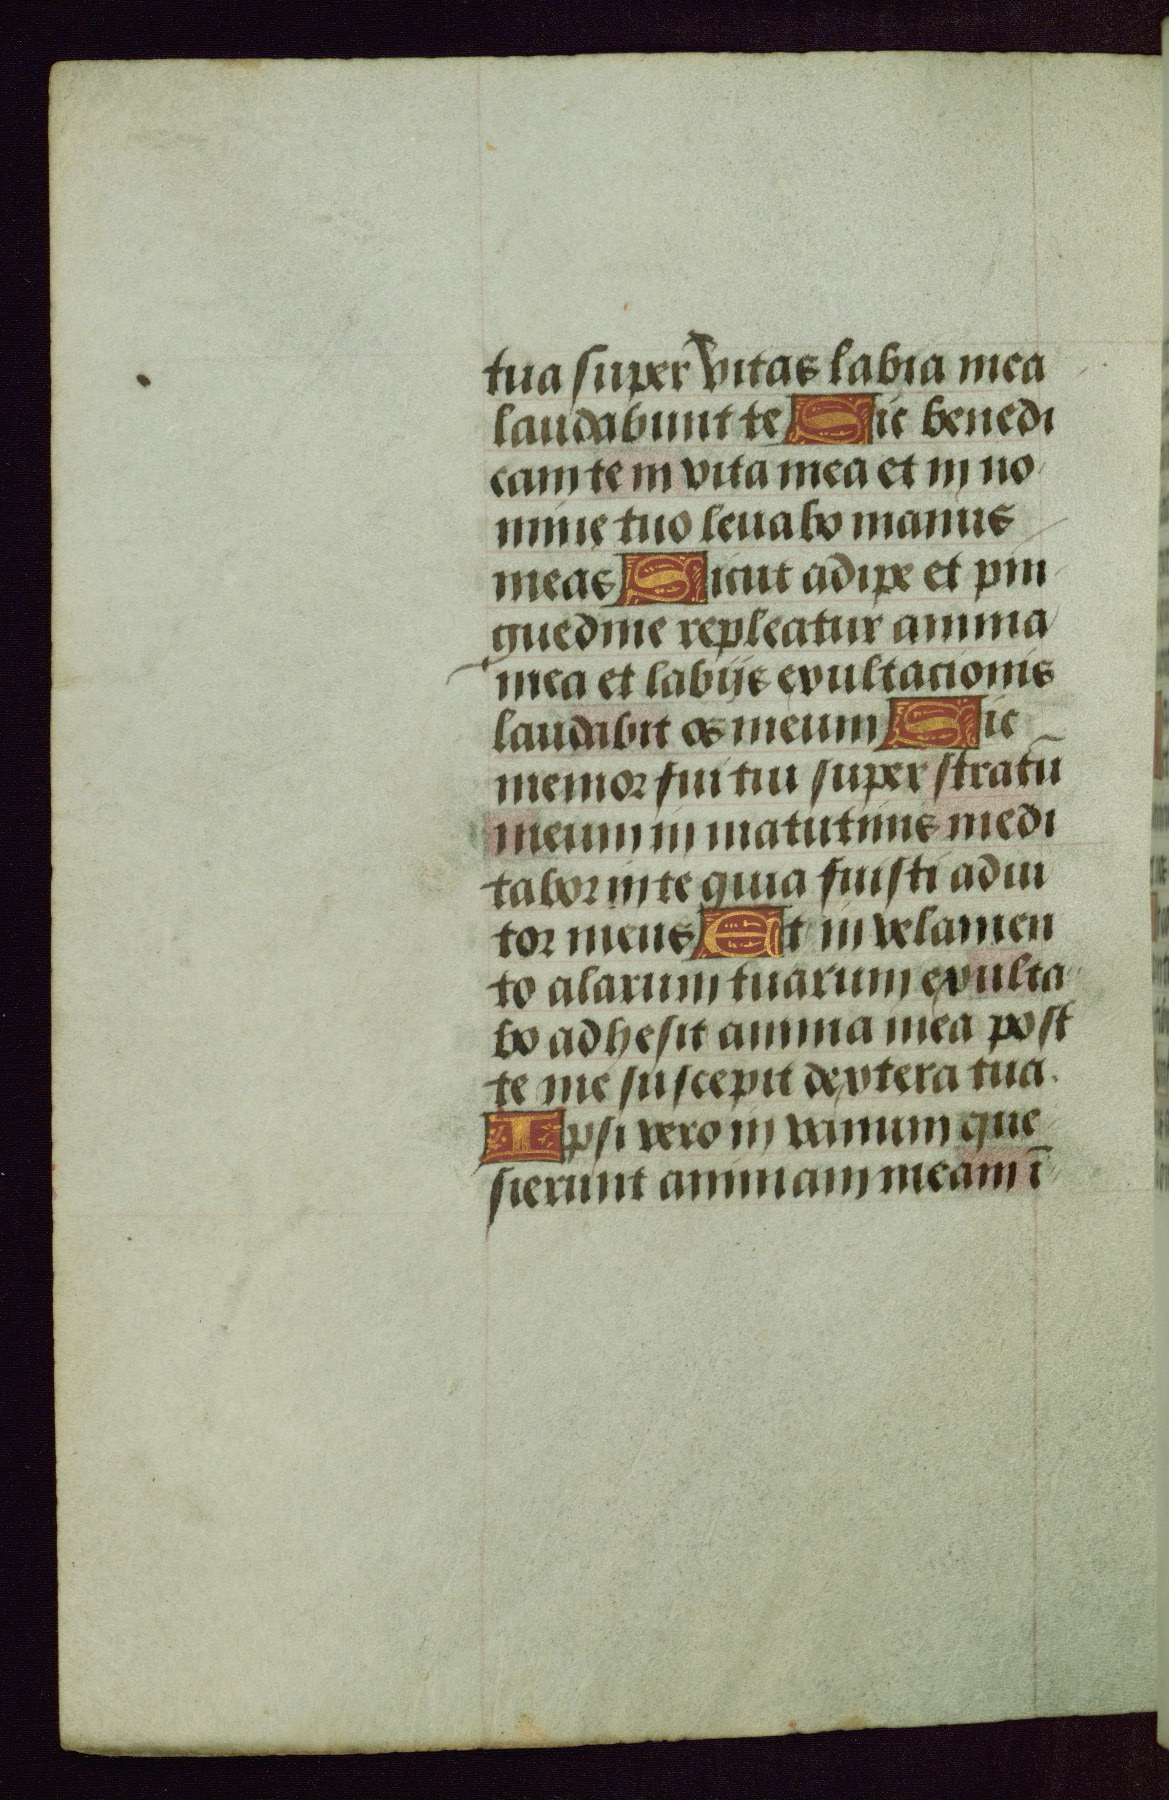 tua super vitas labia mea
laudabunt te Sic benedi
cam te in vita mea et in no
mine tuo leuabo manus
meas Sicut adipe et pin
guedine repleatur anima
mea et labijs exultacionis
laudabit os meum Sic
memor fui tui super stratū
meum in matutinis medi
tabor in te quia fuisti adiu
tor meus Et in velamen
to alarum tuarum exulta
bo adhesit anima mea post
te me suscepit dextera tua.
Ipsi vero in vanum que
sierunt animam meam ī